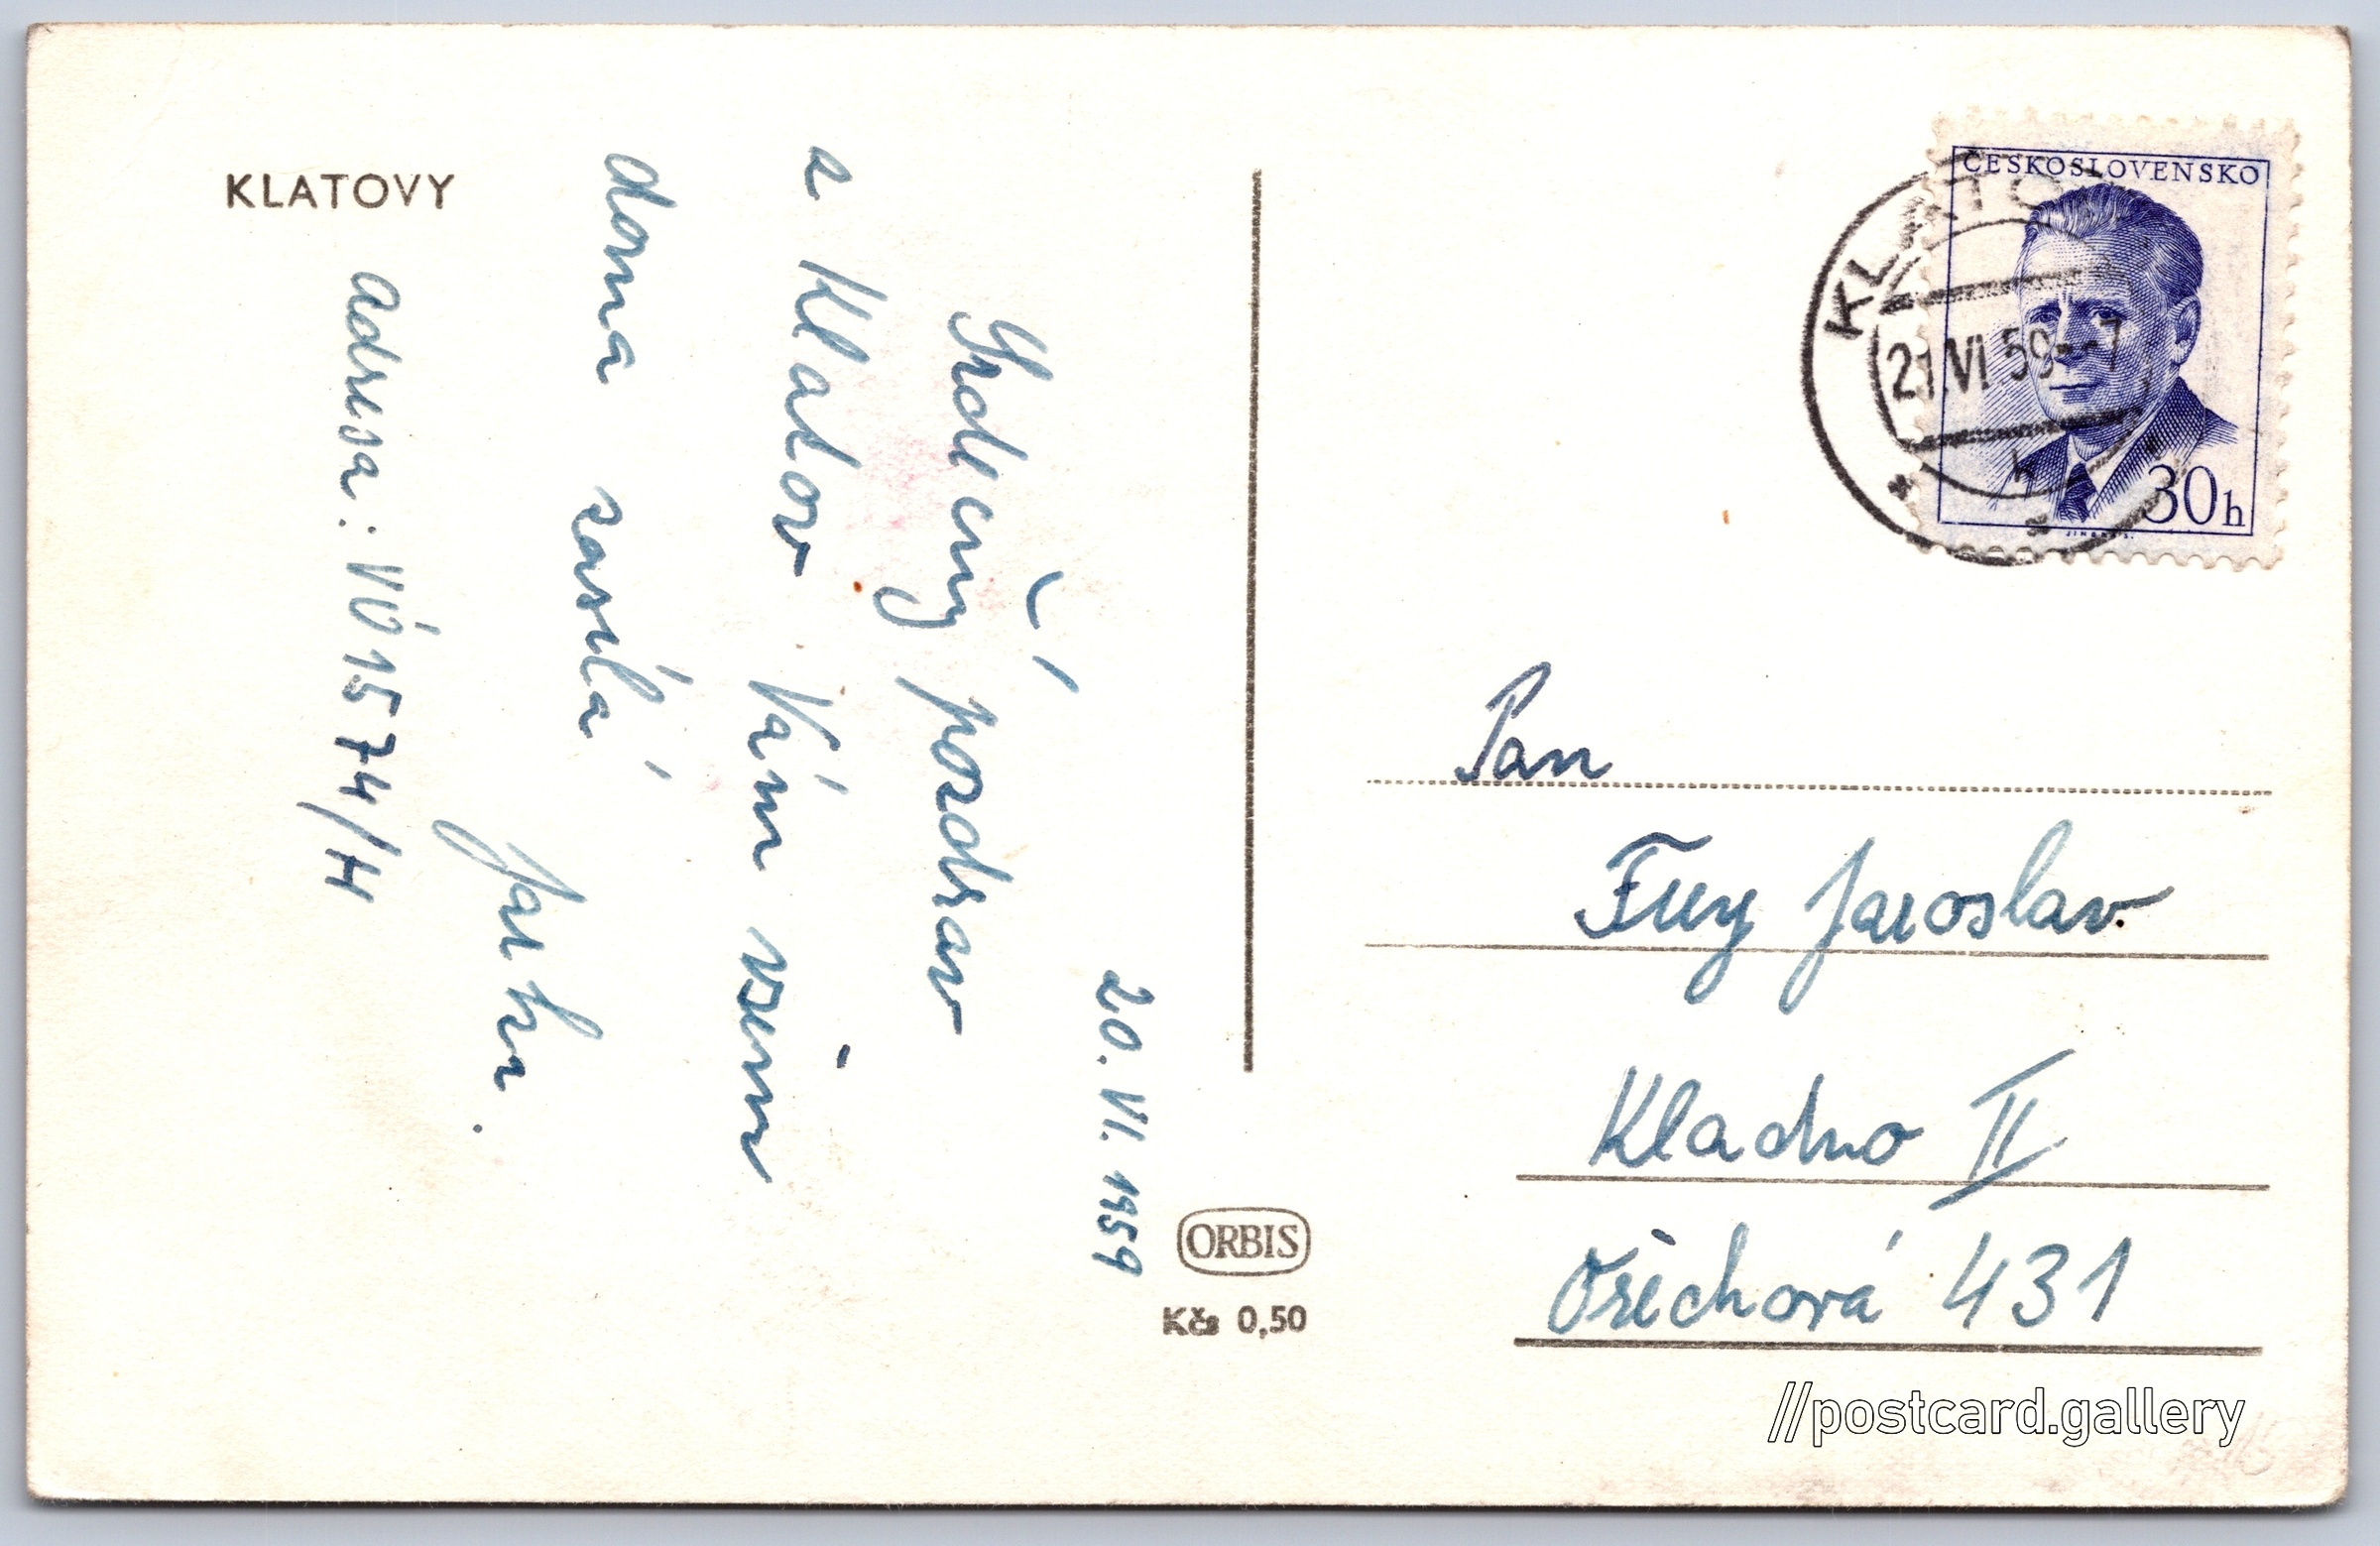 KLATOVY
20. VI. 1959
Srdečný pozdrav
z Klatov Vám všem
doma zasílá
Jarka.
adresa: VÚ 1574/H
ORBIS
Kčs 0,50
ČESKOSLOVENSKO
30h
KLATO
21.VI.59--7
h
Pan
Frey Jaroslav.
Kladno II
Ořechová 431
//postcard.gallery